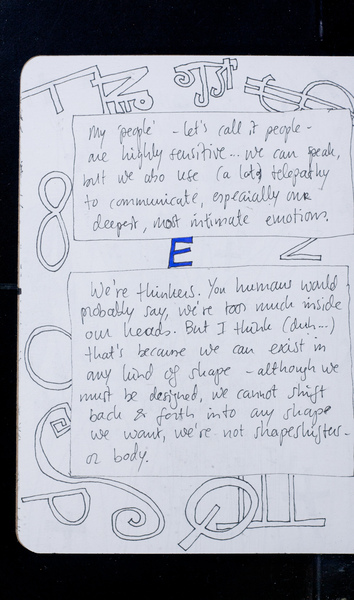 My 'people' - let's call it people -
are highly sensitive... we can speak,
but we also use (a lot) telepathy
to communicate, especially our
deepest, most intimate emotions.
E
We're thinkers. You humans would
probably say, we're too much inside
our heads. But I think (duh...)
that's because we can exist in
any kind of shape - although we
must be designed, we cannot shift
back & forth into any shape
we want, we're not shapeshifters -
or body.